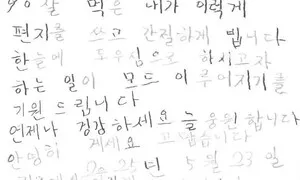 90살 먹은 내가 이렇게
편지를 쓰고 간절하게 빕니다
한눈에 도우심으로 하시고자
하는 일이 모드 이루어지기를
기원 드립니다
언제나 건강하세요 늘 응원합니다
안영히 계세요 고맙습니다
2025년 5월 23일